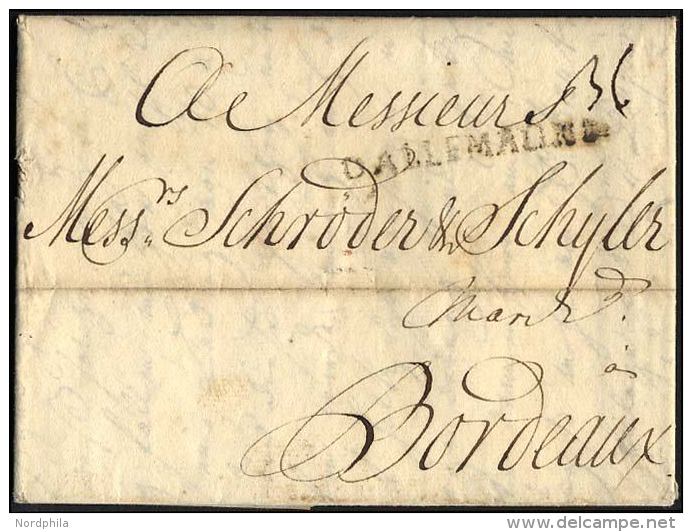 A Messieurs 36
D'ALLEMAGNE
Mess.rs Schröder & Schyler
March.d
à
Bordeaux
Nordphila
www.delcampe.net